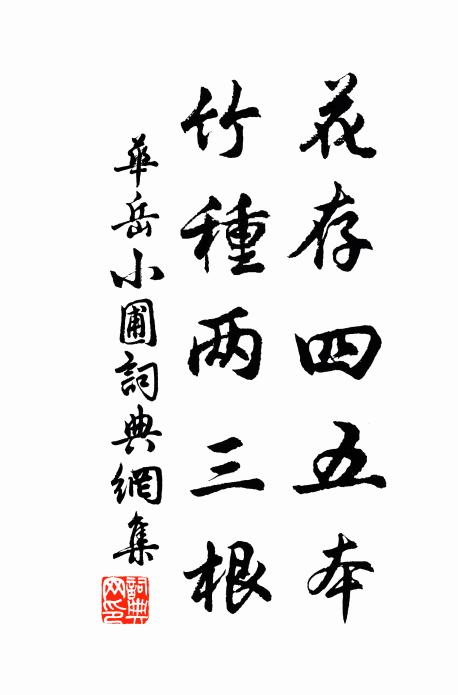 花存四五本
竹種两三根
華岳小圃詞典網集
詞典网印